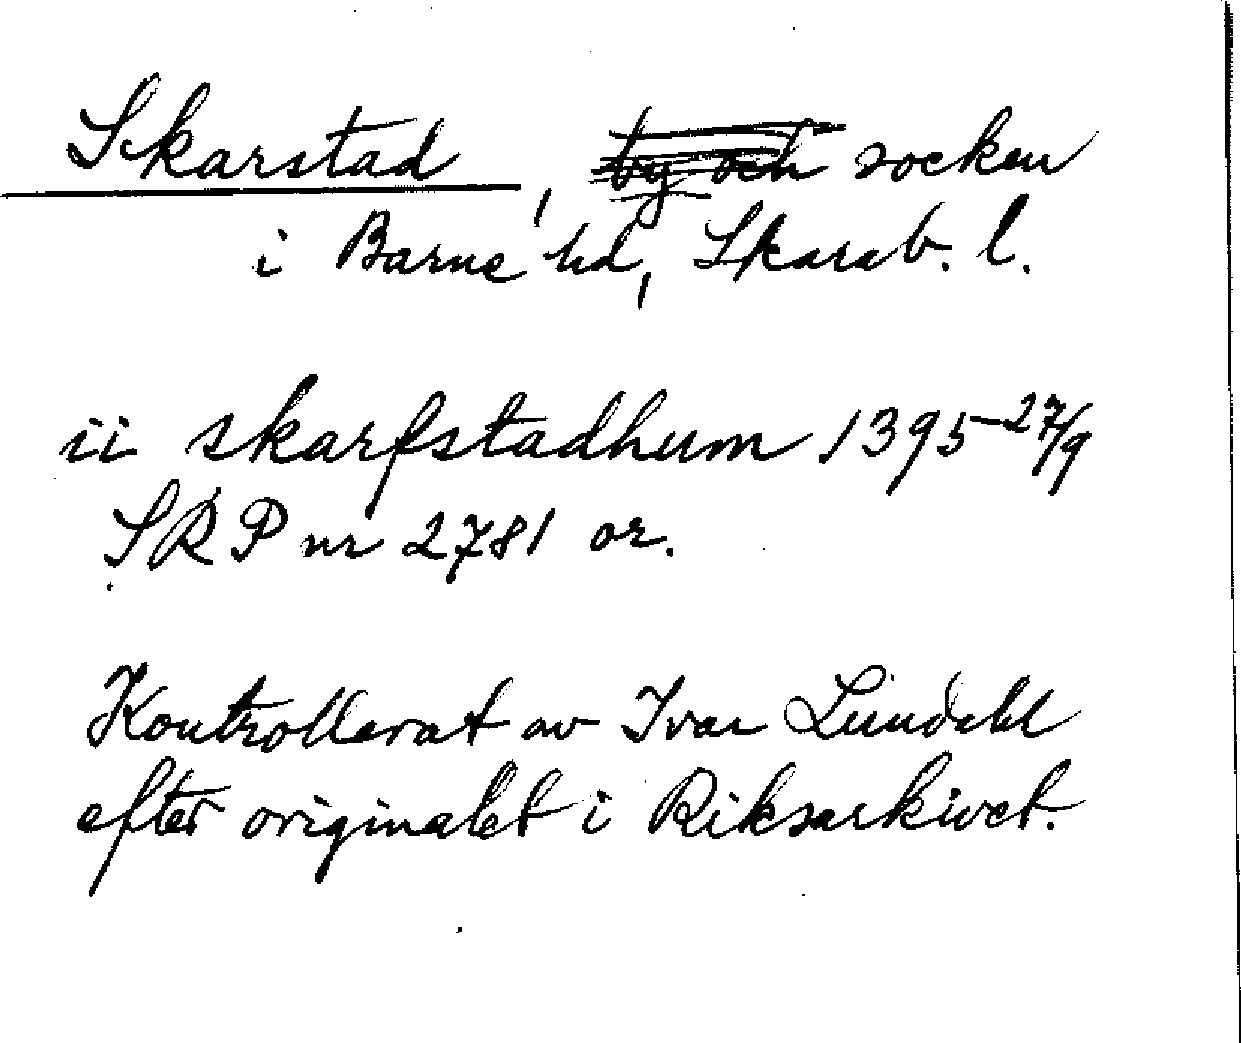 Skarstad, by och socken
i Barne hd, Skarab. l.
ii skarfstadhum 1395 27/9
SRP nr 2781 or.
Kontrollerat av Ivar Lundahl
efter originalet i Riksarkivet.